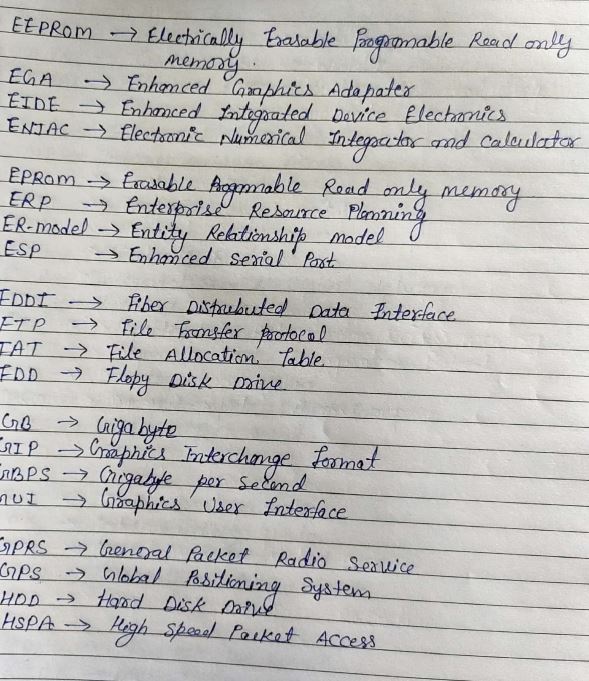 EEPROM → Electrically Erasable Programable Read only
memory.
EGA → Enhanced Graphics Adapater
EIDE → Enhanced Integrated Device Electronics
ENIAC → Electronic Numerical Integrator and calculator
EPROM → Erasable Progomable Read only memory
ERP → Enterprise Resource Planning
ER-model → Entity Relationship model
ESP → Enhanced serial Port
FDDI → Fiber Distrubuted Data Interface
FTP → File Transfer protocol
FAT → File Allocation Table
FDD → Flopy Disk Drive
GB → Gigabyte
GIP → Graphics Interchange format
GBPS → Gigabyte per Second
GUI → Graphics User Interface
GPRS → General Packet Radio Service
GPS → Global Positioning System
HDD → Hard Disk Drive
HSPA → High Speed Packet Access